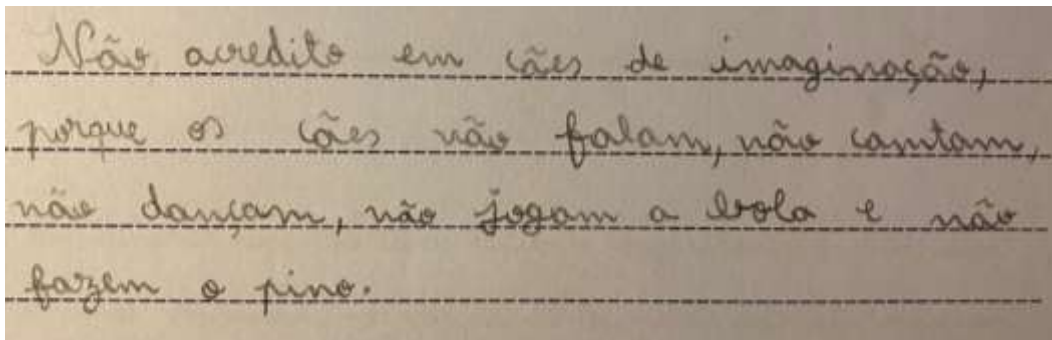 Não acredito em cães de imaginação,
porque os cães não falam, não cantam,
não dançam, não jogam a bola e não
fazem o pino.